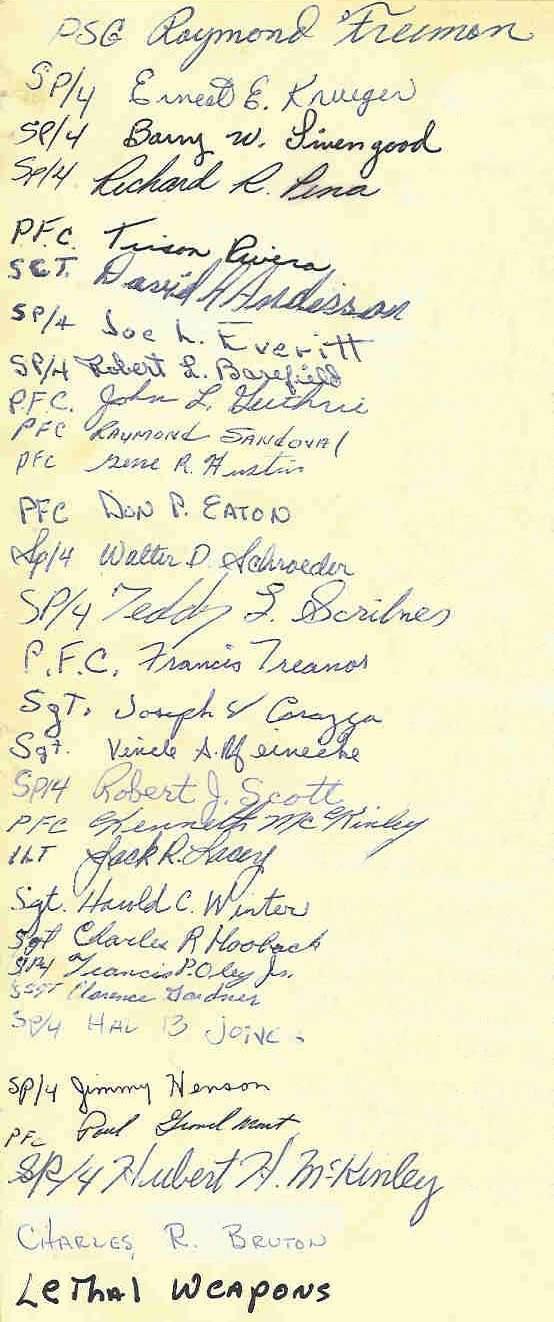 PSG Raymond Freeman
SP/4 Ernest E. Krueger
SP/4 Barry W. Livengood
SP/4 Richard R. Pena
P.F.C. Rivera
SGT. David A Anderson
SP/4 Joe L. Everitt
SP/4 Robert L. Barefield
P.F.C. John L. Guthrie
PFC RAYMOND SANDOVAl
PFC Gene R. Hustin
PFC DON P. EATON
Sp/4 Walter D. Schroeder
SP/4 Teddy L. Scribner
P.F.C. Francis Treanor
SgT. Joseph V Carozza
Sgt. A. Meineche
SP/4 Robert J. Scott
PFC Kenneth McKinley
1LT Jack R. Lacey
Sgt. Harold C. Winter
Sgt Charles R Hooback
SP4 Francis P. Oley Jr.
SSGT Clarence Gardner
SP/4 HAL B
SP/4 Jimmy Henson
PFC Paul
SP/4 Hubert H. McKinley
CHARLES R. BRUTON
LeThAl WeAPONS